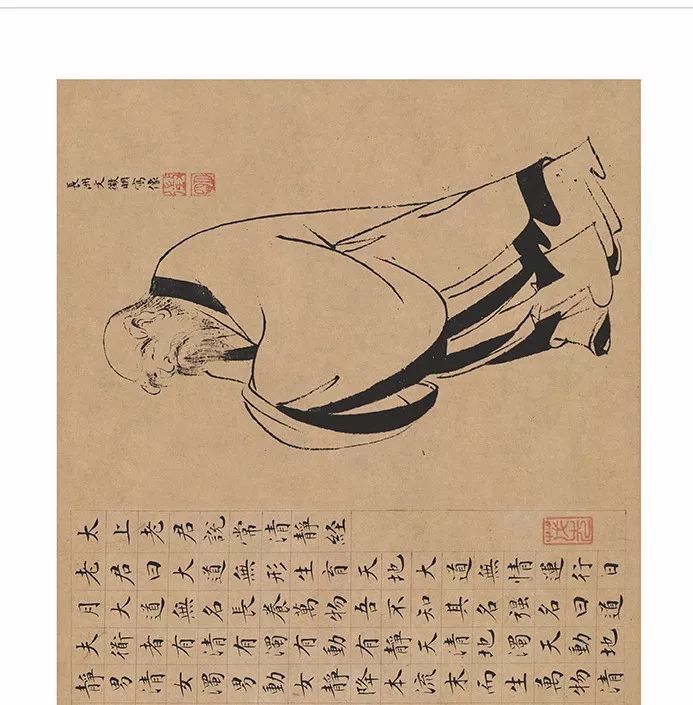 長洲文徵明寫像
太上老君說常清靜經
老君曰大道無形生育天地大道無情運行日
月大道無名長養萬物吾不知其名强名曰道
夫衜者有清有濁有動有靜天清地濁天動地
靜男清女濁男動女靜降本流末而生萬物清